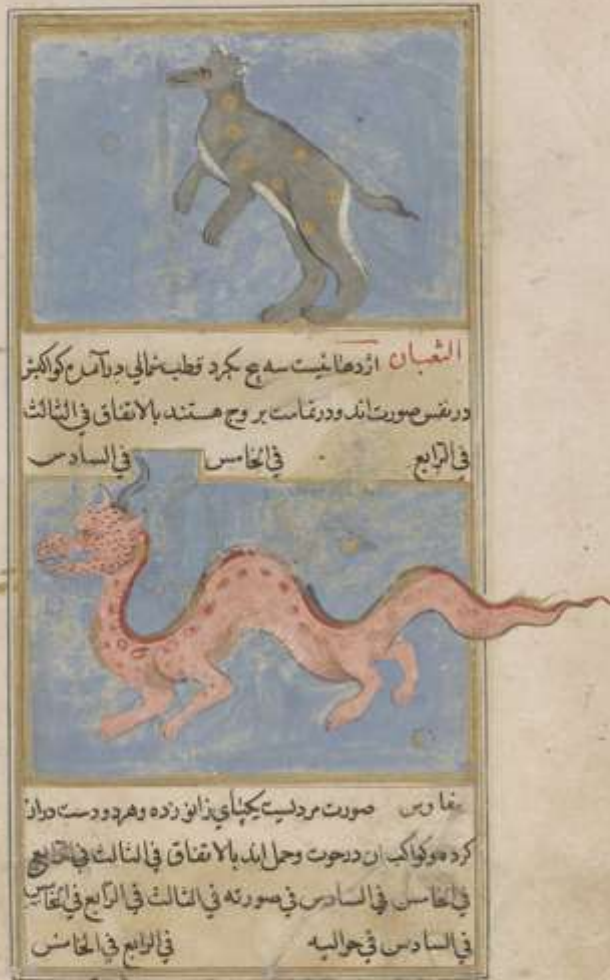 الثعبان اژدهائیست سه پیچ بکرد قطب شمالی درآمده کواکبش
در نفس صورت‌اند و در تمامت بروج هستند بالاتفاق فی الثالث
فی الرابع فی الخامس فی السادس
صورت مردیست یکپای زانو زده و هر دو دست دراز
کرده و کواکب ان در حوت و حمل اند بالاتفاق فی الثالث فی الرابع
فی الخامس فی السادس فی صورته فی الثالث فی الرابع فی الخامس
فی السادس فی حوالیه فی الرابع فی الخامس